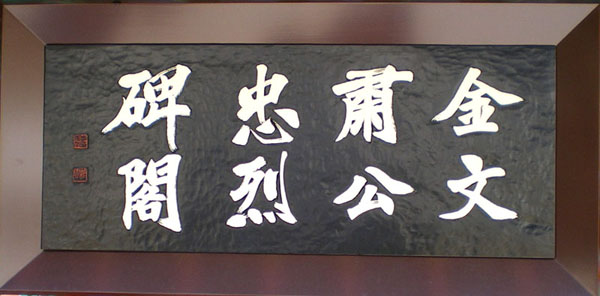 金文
肅公
忠烈
碑閣